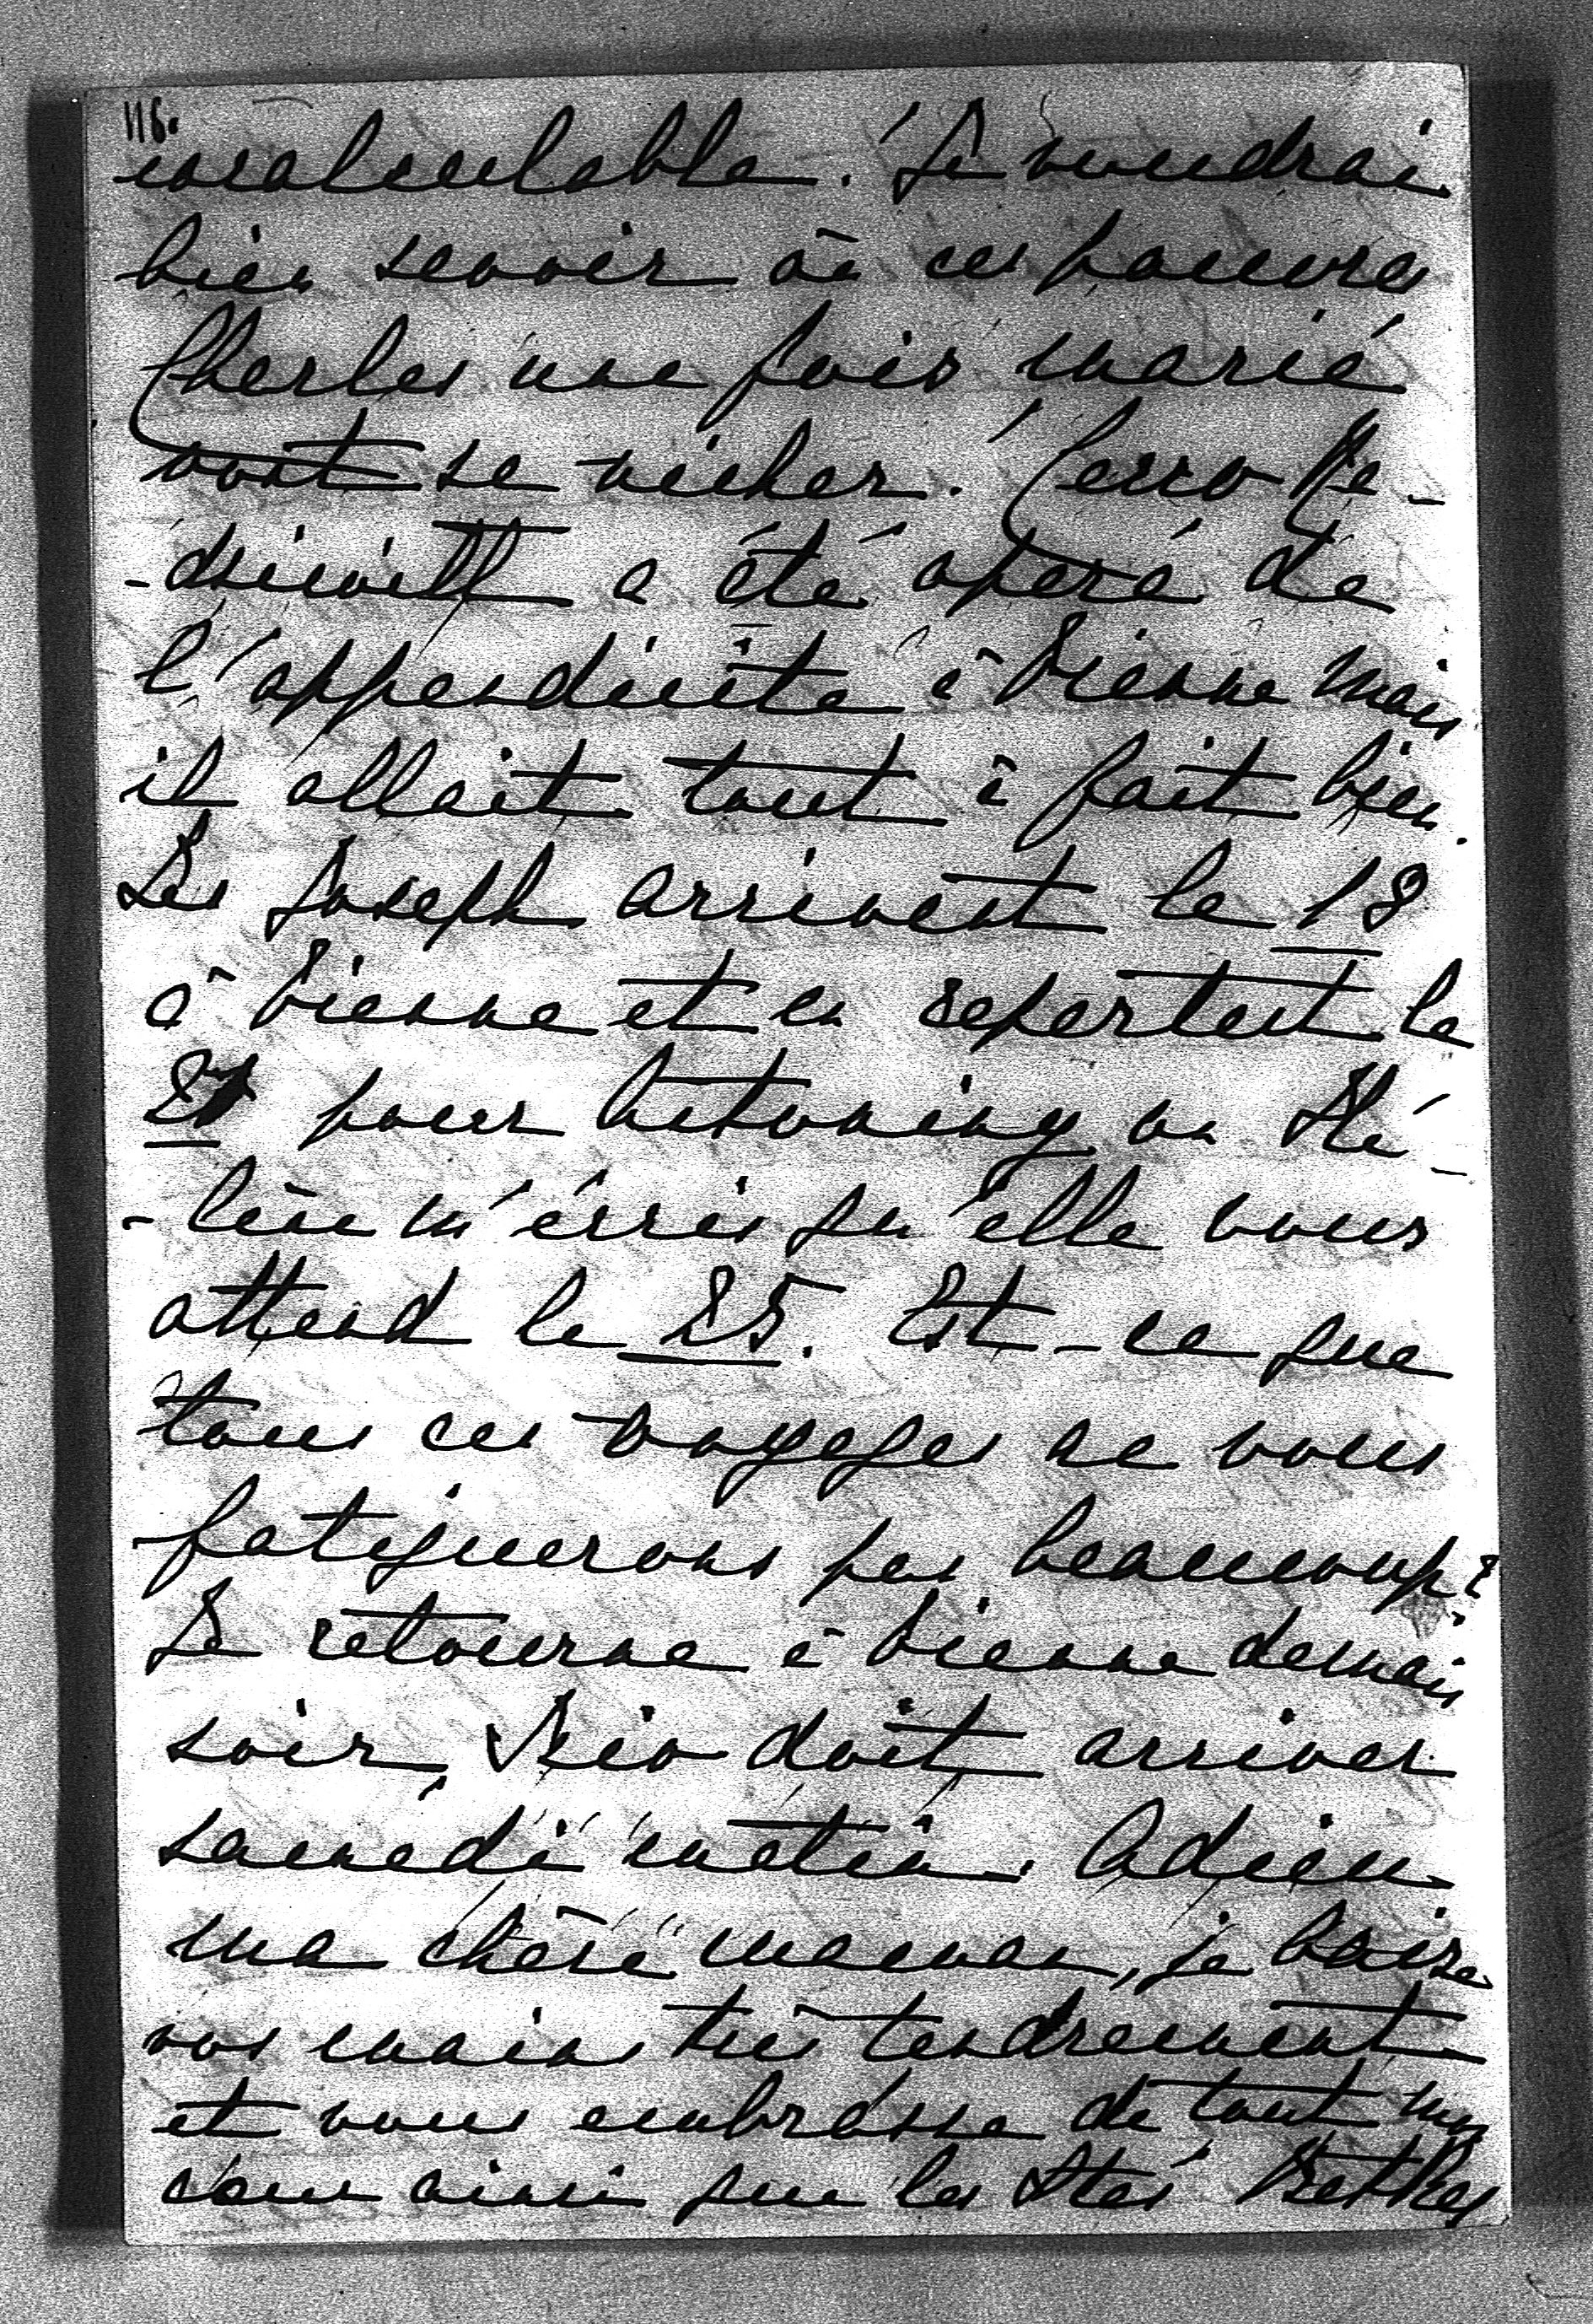 116.
incalculable. Je voudrai
bien savoir où ces pauvres
Charles une fois marié
vont se nicher. Cerco Ra-
-dziwill a été opéré de
l'appendicite à Vienne mais
il allait tout à fait bien.
Les Joseph arrivent le 18
à Vienne et en repartent le
21 pour Antoniny où Hé-
-lène m'écris qu'elle vous
attend le 25. Est-ce que
tous ces voyages ne vous
fatiguerons pas beaucoup?
Je retourne à Vienne demain
soir, doit arriver
samedi matin. Adieu
ma chère maman, je baise
vos mains très tendrement
et vous embrasse de tout mon
cœur ainsi que les